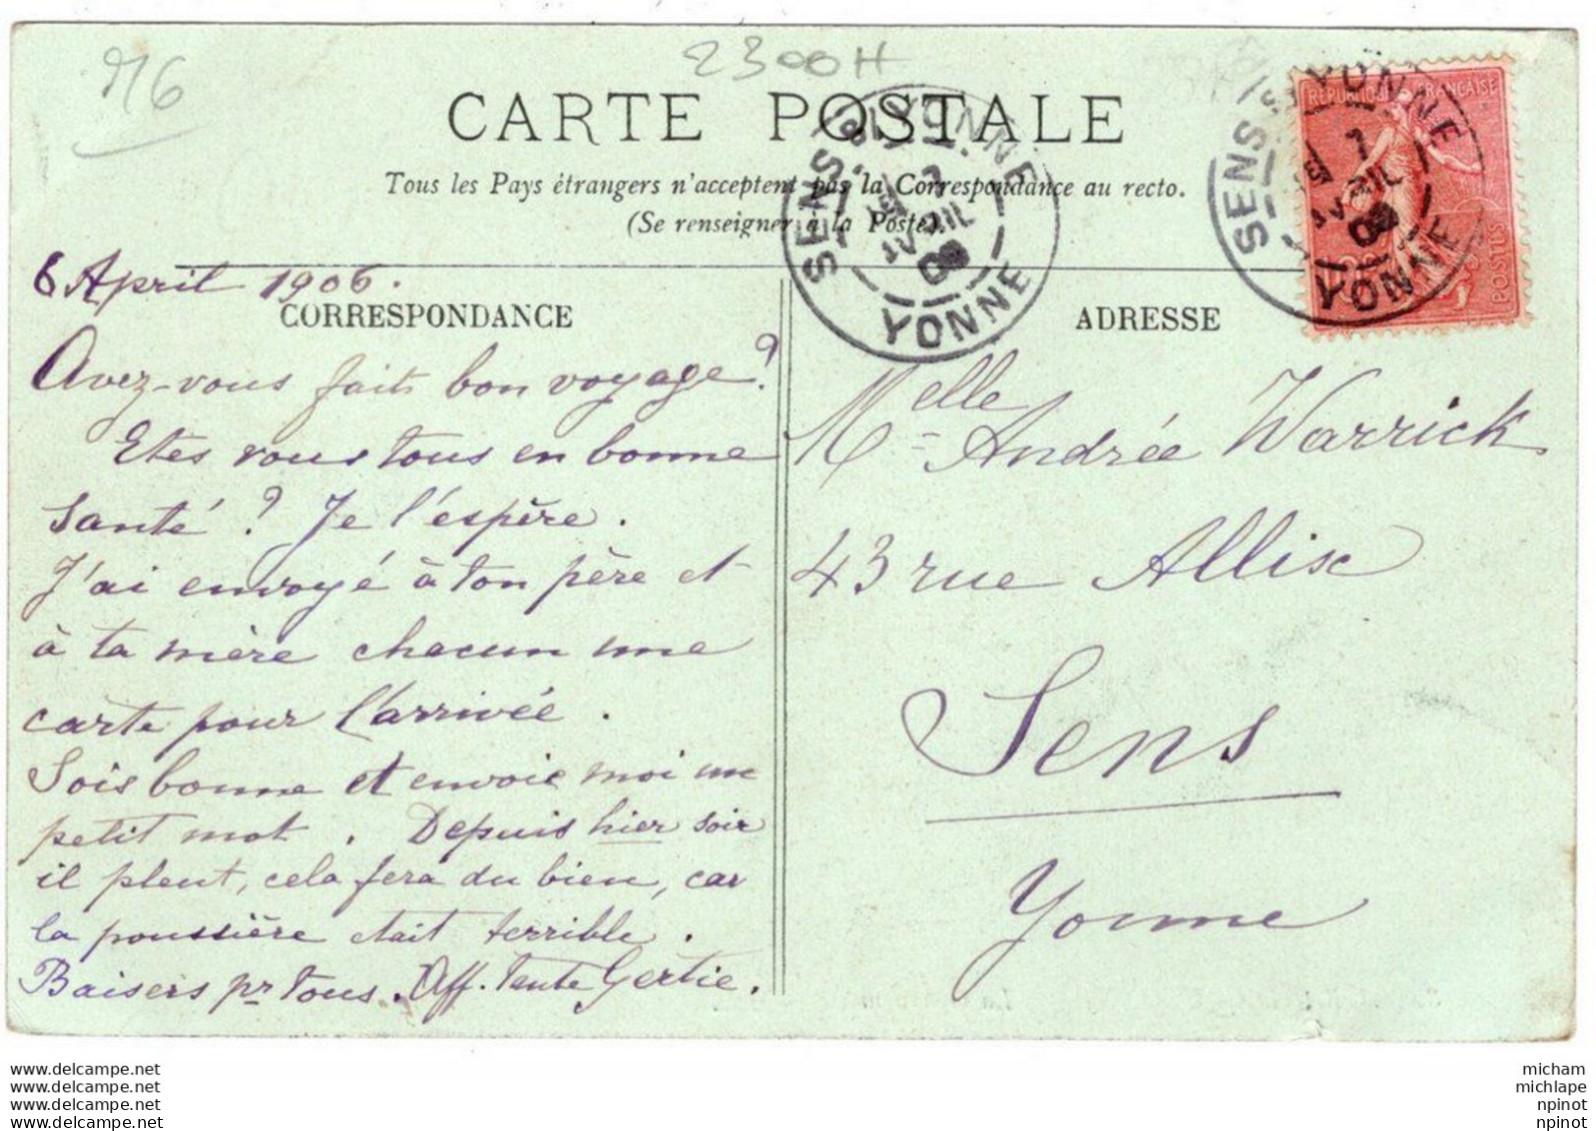 916
2300H
CARTE POSTALE
Tous les Pays étrangers n'acceptent pas la Correspondance au recto.
(Se renseigner à la Poste).
SENS-S-YONNE
YONNE
SENS-S-YONNE
YONNE
RÉPUBLIQUE FRANÇAISE
POSTES
6 April 1906.
CORRESPONDANCE
Avez-vous fait bon voyage?
Etes vous tous en bonne
santé? Je l'espère.
J'ai envoyé à ton père et
à ta mère chacun une
carte pour l'arrivée.
Sois bonne et envoie moi un
petit mot. Depuis hier soir
il pleut, cela fera du bien, car
la poussière était terrible.
Baisers pr tous. Aff. tante Gertie.
ADRESSE
Melle Andrée Warrick
43 rue Allix
Sens
Yonne
www.delcampe.net
www.delcampe.net
www.delcampe.net
www.delcampe.net
micham
michlape
npinot
npinot